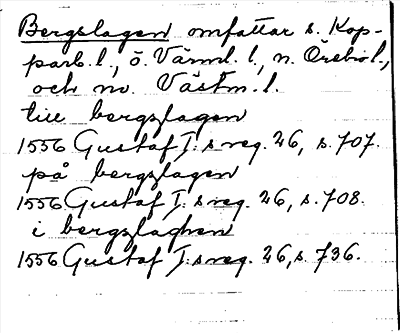 Bergslagen omfattar s. Kop-
parb.l., ö. Värml. l., n. Örebro l.,
och nv. Västm. l.
till bergslagen
1556 Gustaf I:s reg. 26, s. 707.
på bergslagen
1556 Gustaf I:s reg. 26, s. 708.
i bergzlaghen
1556 Gustaf I:s reg. 26, s. 736.